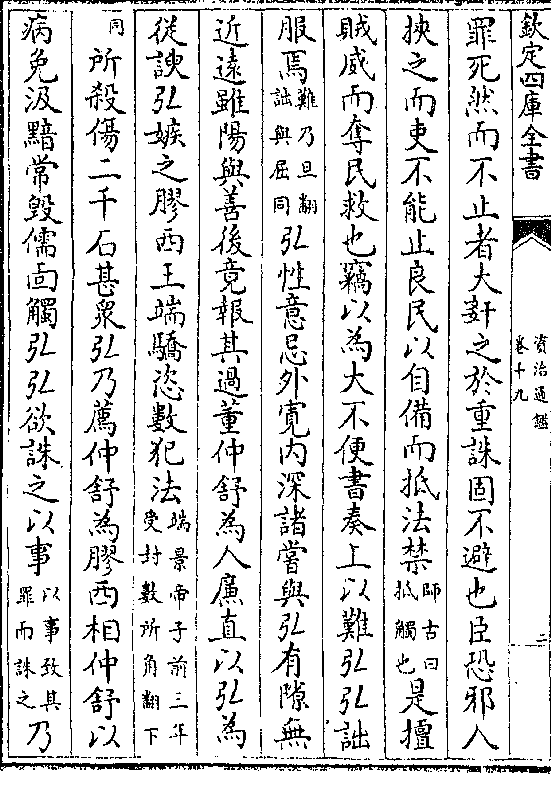 欽定四庫全書
資治通鑑
卷十九
二
罪死然而不止者大姧之於重誅固不避也臣恐邪人
挾之而吏不能止良民以自備而抵法禁師古曰抵觸也是擅
賊威而奪民救也竊以為大不便書奏上以難弘弘詘
服焉難乃旦翻詘與屈同弘性意忌外寛内深諸嘗與弘有隙無
近遠雖陽與善後竟報其過董仲舒為人廉直以弘為
從諛弘嫉之膠西王端驕恣數犯法端景帝子前三年受封數所角翻下
同所殺傷二千石甚衆弘乃薦仲舒為膠西相仲舒以
病免汲黯常毀儒面觸弘弘欲誅之以事以事致其罪而誅之乃